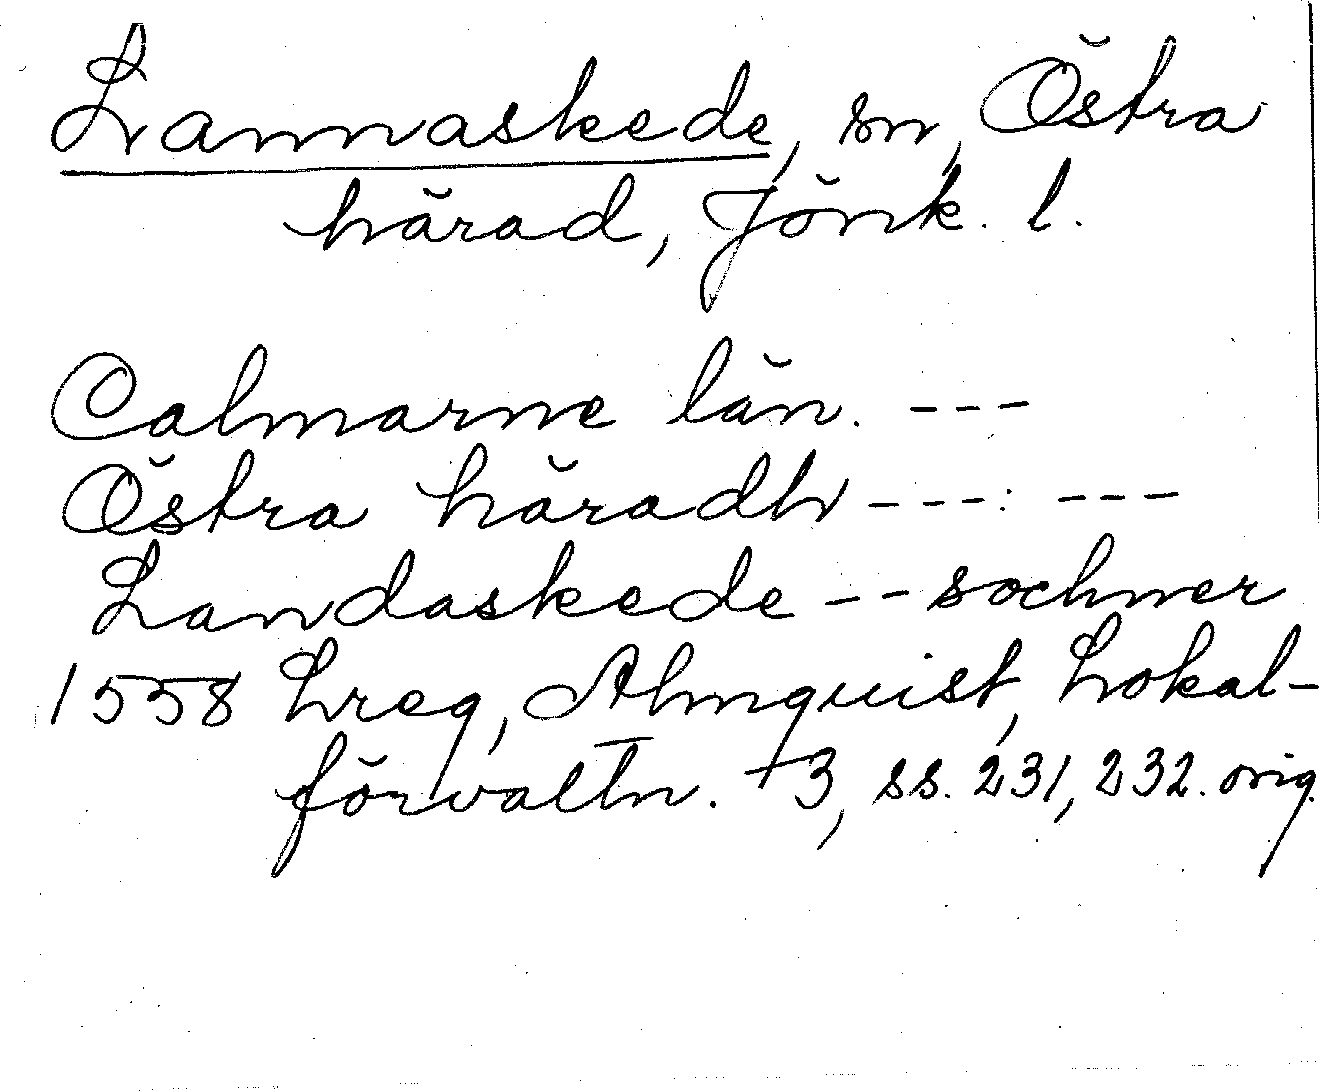 Lannaskede, sn, Östra
härad, Jönk. l.
Calmarne län. ---
Östra häradh ---: ---
Landaskede -- sochner
1558 Lreg, Almquist, Lokal-
förvaltn. †3, ss. 231, 232. orig.